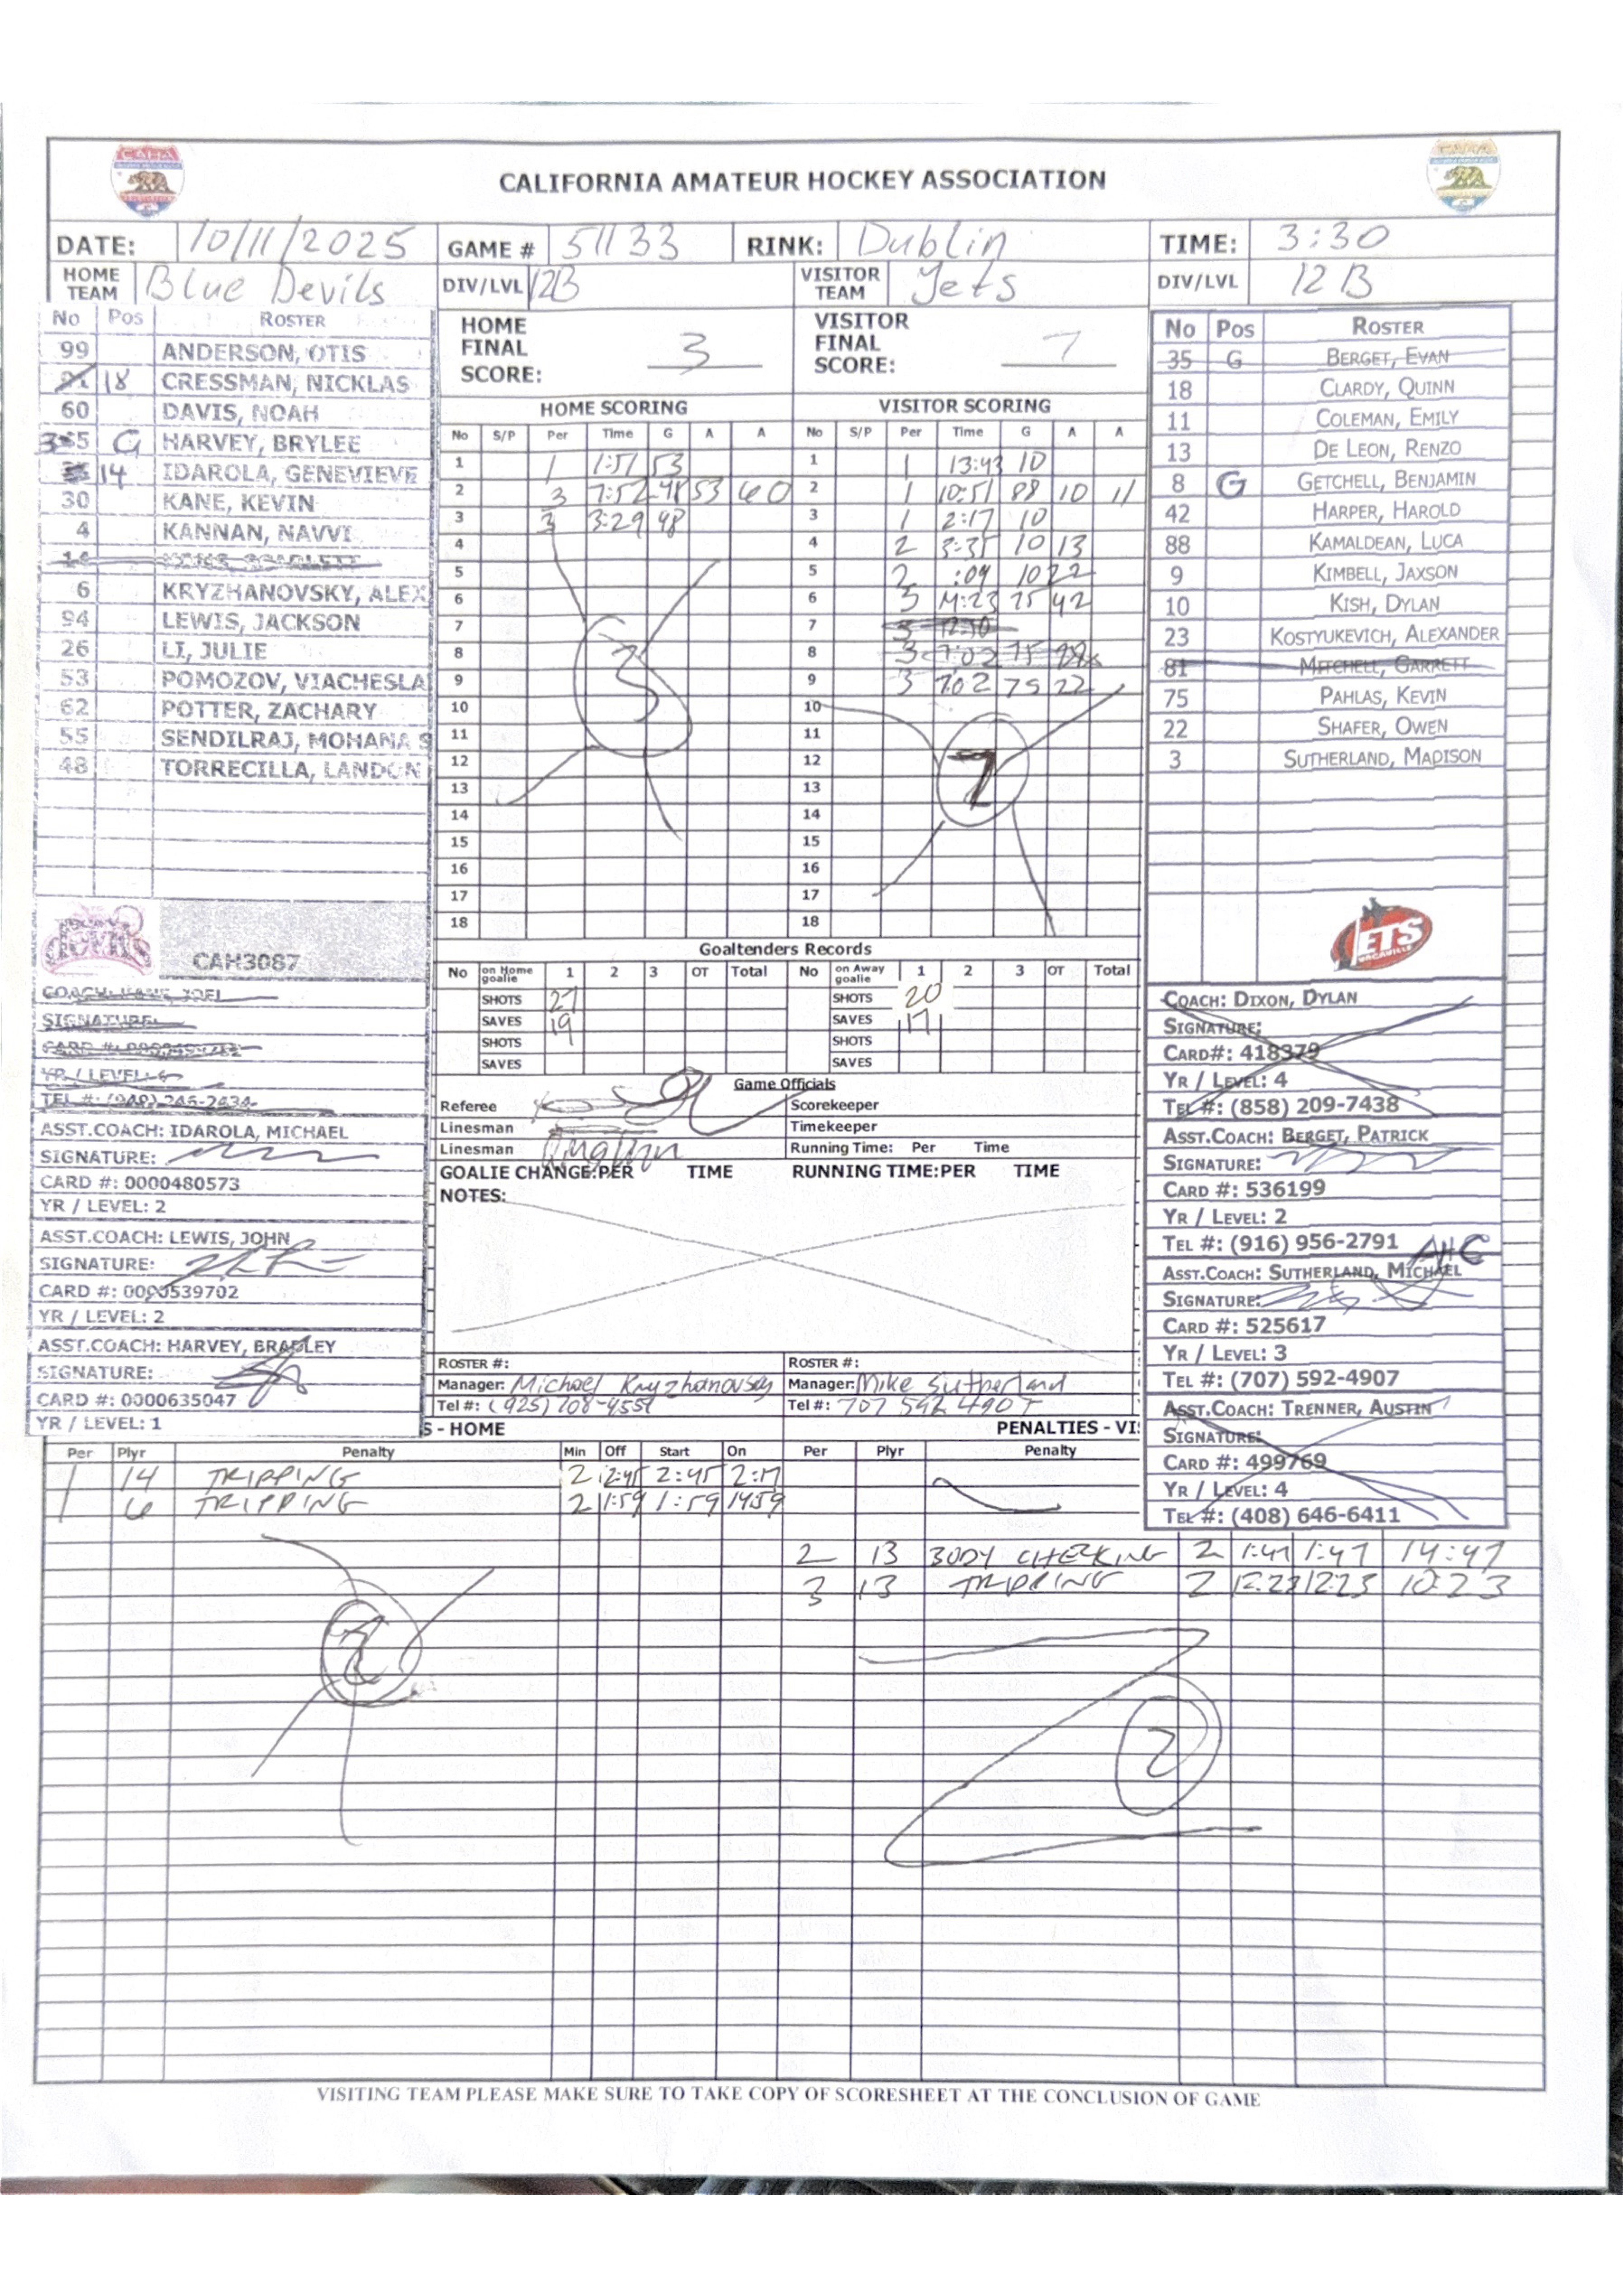 CALIFORNIA AMATEUR HOCKEY ASSOCIATION
DATE: 10/11/2025 GAME # 51133 RINK: Dublin TIME: 3:30
HOME TEAM Blue Devils DIV/LVL 12B VISITOR TEAM Jets DIV/LVL 12B
No Pos ROSTER
99 ANDERSON, OTIS
18 CRESSMAN, NICKLAS
60 DAVIS, NOAH
G HARVEY, BRYLEE
14 IDAROLA, GENEVIEVE
30 KANE, KEVIN
4 KANNAN, NAVVI
6 KRYZHANOVSKY, ALEX
94 LEWIS, JACKSON
26 LI, JULIE
53 POMOZOV, VIACHESLA
62 POTTER, ZACHARY
55 SENDILRAJ, MOHANA S
48 TORRECILLA, LANDON
CAH3087
ASST.COACH: IDAROLA, MICHAEL
SIGNATURE:
CARD #: 0000480573
YR / LEVEL: 2
ASST.COACH: LEWIS, JOHN
SIGNATURE:
CARD #: 0000539702
YR / LEVEL: 2
ASST.COACH: HARVEY, BRADLEY
SIGNATURE:
CARD #: 0000635047
YR / LEVEL: 1
HOME FINAL SCORE: 3
VISITOR FINAL SCORE: 7
HOME SCORING
No S/P Per Time G A A
1 1 1:51 53
2 3 7:52 48 53 60
3 3 3:29 48
4
5
6
7
8
9
10
11
12
13
14
15
16
17
18
3
VISITOR SCORING
No S/P Per Time G A A
1 1 13:43 10
2 1 10:51 88 10 11
3 1 2:17 10
4 2 3:35 10 13
5 2 :09 10 22
6 3 75 42
7
8 3 7:02 75
9 3 7:02 75 22
10
11
12
13
14
15
16
17
18
7
Goaltenders Records
No on Home goalie 1 2 3 OT Total No on Away goalie 1 2 3 OT Total
SHOTS 27 SHOTS 20
SAVES 19 SAVES 17
SHOTS SHOTS
SAVES SAVES
Game Officials
Referee Scorekeeper
Linesman Timekeeper
Linesman Running Time: Per Time
GOALIE CHANGE:PER TIME RUNNING TIME:PER TIME
NOTES:
ROSTER #: ROSTER #:
Manager: Michael Kryzhanovsky Manager: Mike Sutherland
Tel #: (925) 708-4559 Tel #: 707 592 4907
No Pos ROSTER
35 G BERGET, EVAN
18 CLARDY, QUINN
11 COLEMAN, EMILY
13 DE LEON, RENZO
8 G GETCHELL, BENJAMIN
42 HARPER, HAROLD
88 KAMALDEAN, LUCA
9 KIMBELL, JAXSON
10 KISH, DYLAN
23 KOSTYUKEVICH, ALEXANDER
81 MITCHELL, GARRETT
75 PAHLAS, KEVIN
22 SHAFER, OWEN
3 SUTHERLAND, MADISON
JETS
VACAVILLE
COACH: DIXON, DYLAN
SIGNATURE:
CARD#: 418379
YR / LEVEL: 4
TEL #: (858) 209-7438
ASST.COACH: BERGET, PATRICK
SIGNATURE:
CARD #: 536199
YR / LEVEL: 2
TEL #: (916) 956-2791
AHC
ASST.COACH: SUTHERLAND, MICHAEL
SIGNATURE:
CARD #: 525617
YR / LEVEL: 3
TEL #: (707) 592-4907
ASST.COACH: TRENNER, AUSTIN
SIGNATURE:
CARD #: 499769
YR / LEVEL: 4
TEL #: (408) 646-6411
S - HOME PENALTIES - VI
Per Plyr Penalty Min Off Start On Per Plyr Penalty
1 14 TRIPPING 2 2:45 2:45 2:17
1 6 TRIPPING 2 1:59 1:59 1459
2 13 BODY CHECKING 2 1:47 1:47 14:47
3 13 TRIPPING 2 12:23 12:23 10:23
2
2
VISITING TEAM PLEASE MAKE SURE TO TAKE COPY OF SCORESHEET AT THE CONCLUSION OF GAME